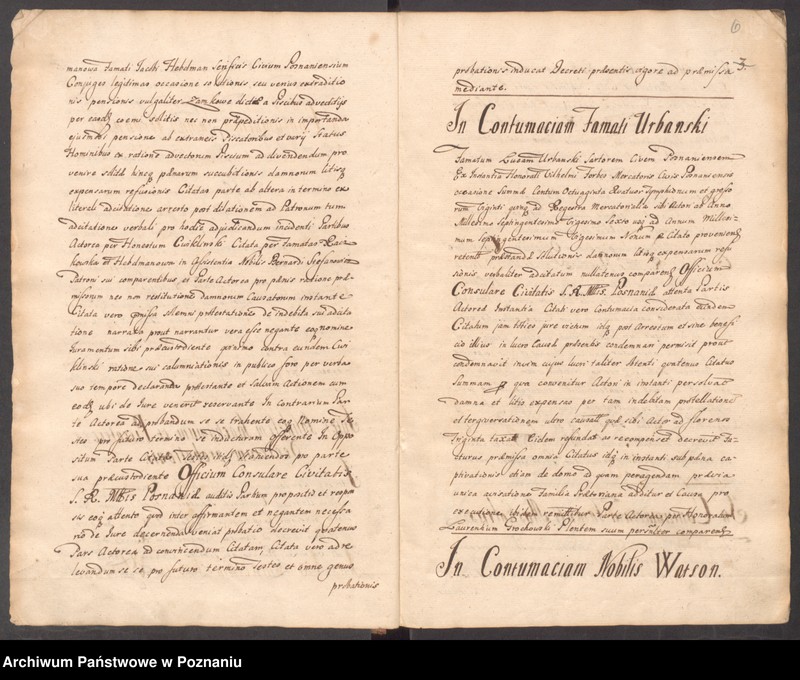 manowa Famati Jacobi Hebdman Senficis Civium Posnaniensium
Conjuges legitimas occasione solutionis seu venius extraditio
nis pensionis vulgariter Zamkowe dictæ a Piscibus advectitijs
per easdq coemi solitis nec non præpeditionis in importanda
ejusmodi pensione ab extraneis Piscatoribus et cuivis Status
Hominibus ex ratione advectorum Piscium ad divendendum pro
venire solita hincq pænarum succubitionis damnorum litisq
expensarum refusionis Citatas parte ab altera in termino ex
literali adcitatione arresto post dilationem ad Patronum tum
adcitatione verbali pro hodie adjudicandum incidenti Partibus
Actorea per Honestum Cwiklinski Citata per Famatas
kowska et Hebdmanowam in Assistentia Nobilis Bernardi Stefanowicz
Patroni sui comparentibus et Parte Actorea pro pænis ratione præ-
missorum nec non restitutione damnorum Causatorum instante
Citata vero præmissa solemni protestatione de indebita sui adcita
tione narrata prout narrantur vera esse negante eoq nomine
Juramentum sibi præcustodiente quinimo contra eundem Cwi
klinski ratione sui calumniationis in publico foro per verba
suo tempore declaranda protestante et Salvam Actionem cum
eodq ubi de Jure venerit reservante In Contrarium Par
te Actorea ad probandum se se trahente eoq nomine Te
stes pro futuro termino se inducturam offerente In Oppo
situm Parte Citata pro parte
sua præcustodiente Officium Consulare Civitatis
S. R. Mttis Posnaniæ auditis Partium propositis et respon
sis eoq attento quod inter affirmantem et negantem necessa
rio de Jure decernenda veniat probatio decrevit quatenus
Pars Actorea ad convincendum Citatam Citata vero ad re
levandum se se pro futuro termino Testes et omne genus
probationis
6
3.
probationis inducat Decreti præsentis vigore ad præmissa
mediante.
In Contumaciam Famati Urbanski
Famatum Lucam Urbanski Sartorem Civem Posnaniensem
Ex Instantia Honorati Wilhelmi Forbes Mercatoris Civis Posnaniensis
occasione Summæ Centum Octuaginta Quatuor Tymphonum et grosso
rum Viginti Regestra Mercatorialia sibi Actori ab Anno
Millesimo Septingentesimo Vigesimo Sexto usq ad Annum Millesi-
mum Septingentesimum Vigesimum Nonum a Citato provenienq
retentæ solutionis damnorum litisq expensarum refu
sionis verbaliter adcitatum nullatenus comparenq Officium
Consulare Civitatis S. R. Mttis Posnaniæ attenta Partis
Actoreæ Instantia Citati vero Contumacia considerata eundem
Citatum jam ideo jure victum idq post Arrestum et sine benefi
cio illius in lucro Causæ præsentis condemnari permisit prout
condemnavit in vim cujus lucri taliter obtenti quatenus Citatus
Summam pro qua convenitur Actori in instanti persolvat
damna et litis expensas per tam indebitam protelationem
et tergiversationem ultro causatas quas sibi Actor ad florenos
Triginta taxat Eidem refundat ac recompenset decrevit Sa-
turus præmissa omnia Citatus idq in instanti sub pæna ca
ptivationis etiam de domo ad quam peragendam prævia
unica acrisatione Familia Prætoriana additur et Causa pro
executione ibidem remittitur Parte Actorea per Honoratum
Laurentium Grochowski Plenotem suum personaliter comparenq
In Contumaciam Nobilis Watson.
Archiwum Państwowe w Poznaniu